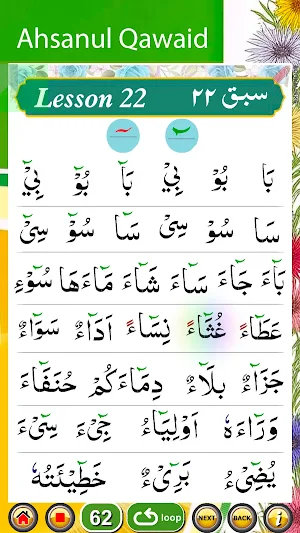 Ahsanul Qawaid
Lesson 22 سبق ۲۲
بَا بُوْ بِيْ بَآ بُوْٓ بِيْٓ
سَا سُوْ سِيْ سَآ سُوْٓ سِيْٓ
بَآءَ جَآءَ سَآءَ شَآءَ مَآءَهَا سُوْٓءِ
عَطَآءً غُثَآءً نِسَآءً اَدَآءٌ سَوَآءٌ
جَزَآءٌ بَلَآءٌ دِمَآءَكُمْ حُنَفَآءَ
وَرَآءَهٗ اَوْلِيَآءُ جِيْٓءَ سِيْٓءَ
يُضِيْٓءُ بَرِيْٓءٌ خَطِيْٓئَتُهٗ
62 loop NEXT BACK i